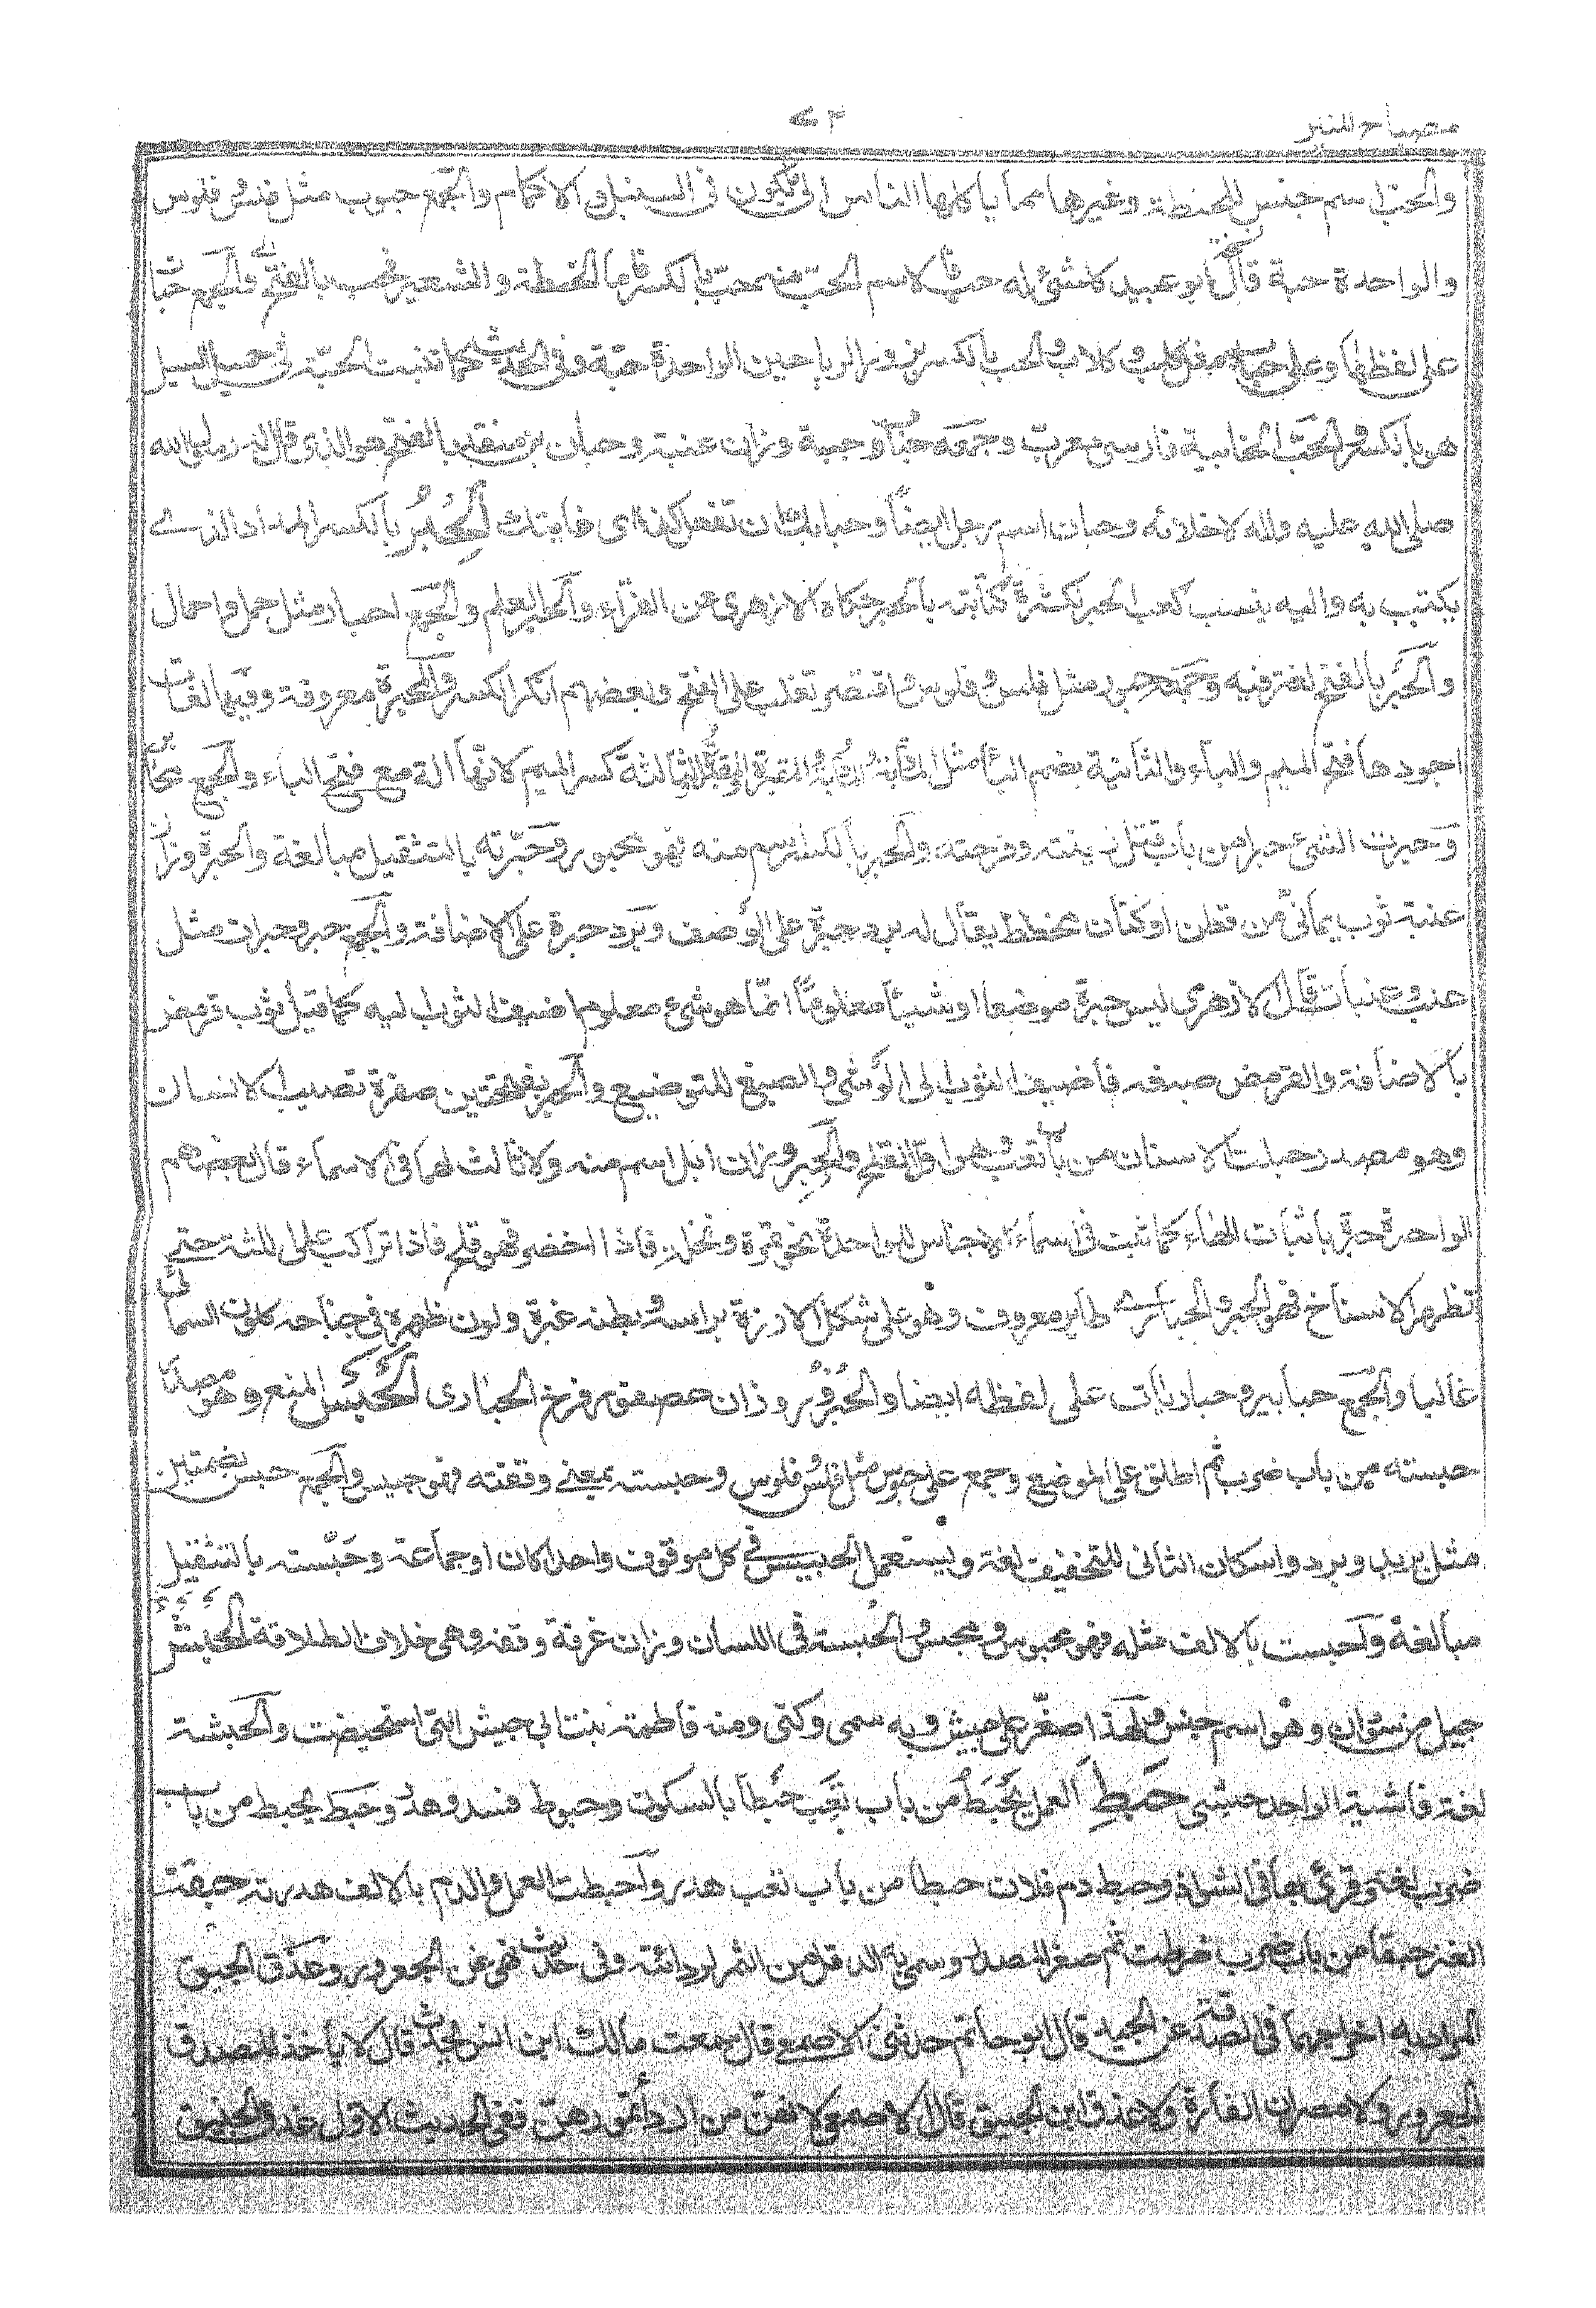 مصباح المنير
والحب اسم جنس للحنطة وغيرها مما ياكلها الناس التى تكون فى السنبل والاكمام والجمع حبوب مثل فلس فلوس
والواحدة حبة قال ابو عبيد كل شئ له حب فاسم الحب منه حب بالكسر فاما الحنطة والشعير فحب بالفتح والجمع حبات
على لفظها وعلى حباب مثل كلب وكلاب والحب بالكسر بزور الرياحين الواحدة حبة وفى الحديث كما تنبت الحبة فى حميل السيل
هو بالكسر والحب الخابية فارسى معرب وجمعه حباب وحببة وزان عنبة وحبان بن منقذ بالفتح هو الذى قال له رسول الله
صلى الله عليه واله لا خلابه وحبان اسم رجل ايضاً وحبابك ان تفعل كذا اى غايتك الحبر بالكسر المداد الذے
يكتب به واليه ينسب كعب الحبر لكثرة كتابته بالحبر حكاه الازهرى عن الفراء والحبر العالم والجمع احبار مثل حمل واحمال
والحبر بالفتح لغة فيه وجمعه حبور مثل فلس وفلوس واقتصر ثعلب على الفتح وبعضهم انكر الكسر والمحبرة معروفة وفيها لغات
اجودها فتح الميم والباء والثانية بضم الباء مثل المأدبة المقبرة والثالثة كسر الميم لانها الة مع فتح الباء والجمع محابر
وحبرت الشئ حبرا من باب قتل زينته وفرحته والحبر بالكسر اسم منه فهو محبور وحبّرته بالتثقيل مبالغة والحبرة وزان
عنبة ثوب يمانى من قطن او كتان مخطط يقال له برد حبرة على الوصف وبرد حبرة على الاضافة والجمع حبر وحبرات مثل
عنب وعنبات قال الازهرى ليس حبرة موضعا او شيئاً معلوماً انما هو شئ معلوم اضيف الثوب اليه كما قيل ثوب قرمز
بالاضافة والقرمز صبغه فاضيف الثوب الى الوشى والصبغ للتوضيح والحبر بفتحتين صفرة تصيب الاسنان
وهو مصدر حبرت الاسنان من باب تعب وهو اول القلح والحبر وزان ابل اسم منه ولا ثالث لها فى الاسماء قال بعضهم
الواحدة حبرة باثبات الهاء كما ثبت فى اسماء الاجناس للواحدة نحو تمرة ونخلة فاذا اخضر فهو قلح فاذا تراكب على اللثة حتے
تظهر الاسناخ فهو الحبر والحبارے طاير معروف وهو على شكل الاوزة براسه وبطنه غبرة ولون ظهره وجناحه كلون السمانى
غالبا والجمع حبابير وحباريات على لفظه ايضا والحبرور وزان عصفور فرخ الحبارى الحبس المنع وهو مصدر
حبسته من باب ضرب ثم اطلق على الموضع وجمع على حبوس مثل فلس فلوس وحبسته بمعنے وقفته فهو حبيس والجمع حبس بضمتين
مثل بريد وبرد واسكان الثانى للتخفيف لغة ويستعمل الحبيس فے كل موقوف واحدا كان او جماعة وحبّسته بالتثقيل
مبالغة واحبست بالالف مثله فهو محبوس ومحبس والحبسة فى اللسان وزان غرفة وقفه وهى خلاف الطلاقة الحبش
جيل من سودان وهو اسم جنس ولهذا صغر على حبيش وبه سمى وكنى ومنه فاطمة بنت ابى حبيش التى استحيضت والحبشة
لغة فاشية الواحد حبشى حبط العمل يحبط من باب تعب حبطا بالسكون وحبوط فسد وهدر وحبط يحبط من باب
ضرب لغة وقرئ بها فى الشواذ وحبط دم فلان حبطا من باب تعب هدر واحبطت العمل والدم بالالف هدرته حبقت
العنز حبقا من باب ضرب ضرطت ثم صغر المصدر وسمى به الدقل من التمر لردائته وفى حديث نهى عن الجعرور وعذق الحبيق
المراد به اخراجهما فى الصدقة عن الجيد قال ابو حاتم حدثنى الاصمعى قال سمعت مالك ابن انس يحدث قال لا ياخذ المصدق
الجعرور ولا مصران الفارة ولا عذق ابن الحبيق قال الاصمعى لانهن من اردأ تمورهن ففى الحديث الاول عذق الحبيق